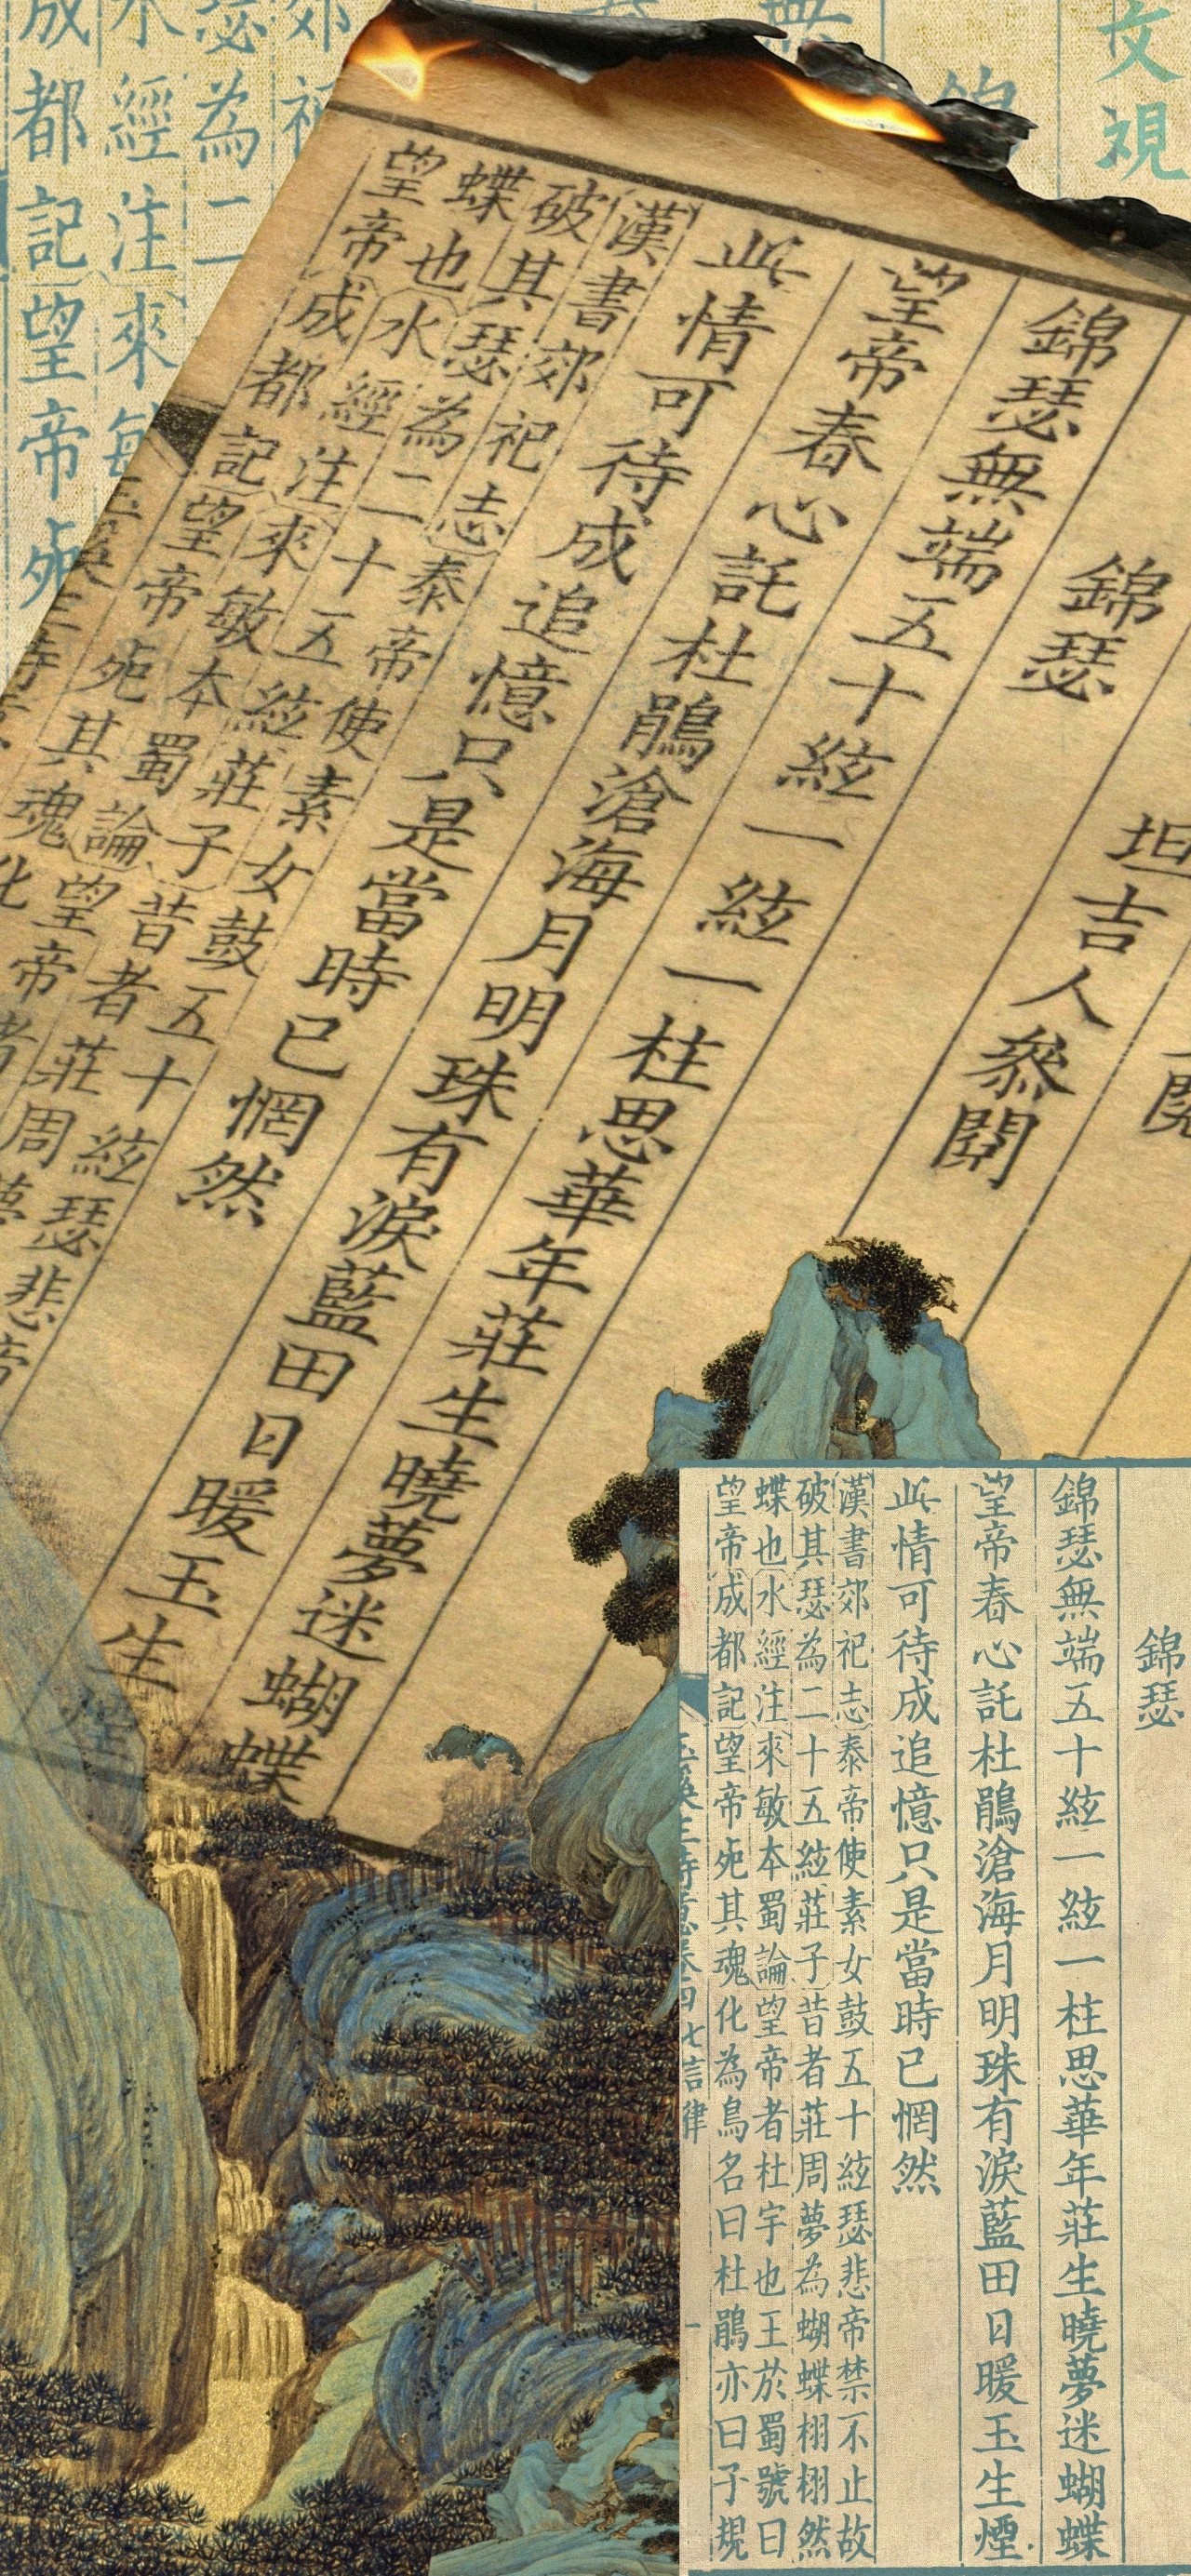 文視
錦
無
郊祀
瑟為二
水經注來敏
成都記望帝死
坦吉人叅閱
錦瑟
錦瑟無端五十絃一絃一柱思華年莊生曉夢迷蝴蝶
望帝春心託杜鵑滄海月明珠有淚藍田日暖玉生煙
此情可待成追憶只是當時已惘然
漢書郊祀志泰帝使素女鼓五十絃瑟悲帝
破其瑟為二十五絃莊子昔者莊周夢
蝶也水經注來敏本蜀論望帝者
望帝成都記望帝死其魂化
錦瑟
錦瑟無端五十絃一絃一柱思華年莊生曉夢迷蝴蝶
望帝春心託杜鵑滄海月明珠有淚藍田日暖玉生煙
此情可待成追憶只是當時已惘然
漢書郊祀志泰帝使素女鼓五十絃瑟悲帝禁不止故
破其瑟為二十五絃莊子昔者莊周夢為蝴蝶栩栩然
蝶也水經注來敏本蜀論望帝者杜宇也王於蜀號曰
望帝成都記望帝死其魂化為鳥名曰杜鵑亦曰子規